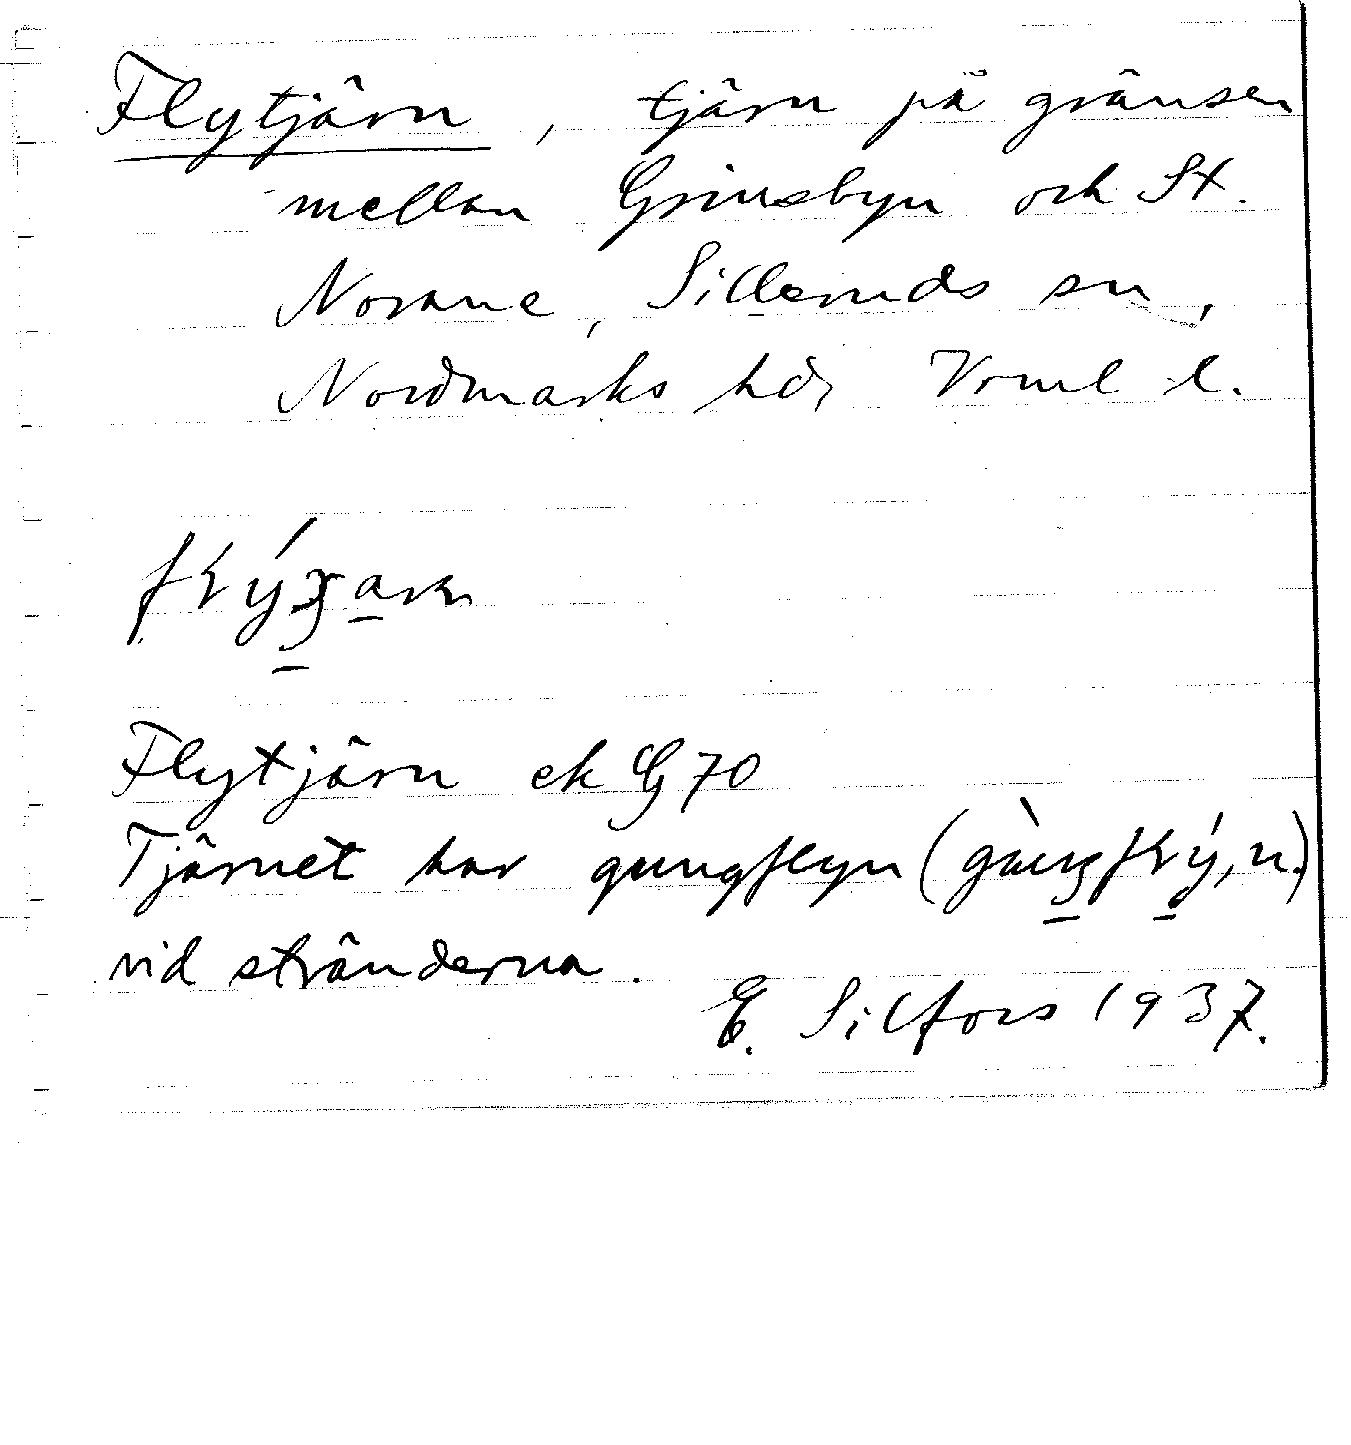 Flytjärn, tjärn på gränsen
mellan Grinsbyn och St.
Norane, Silleruds sn,
Nordmarks hd, Vrml l.
Flytjärn ek G 70
Tjärnet har gungflyn (
, n.)
vid stränderna.
E. Silfors 1937.